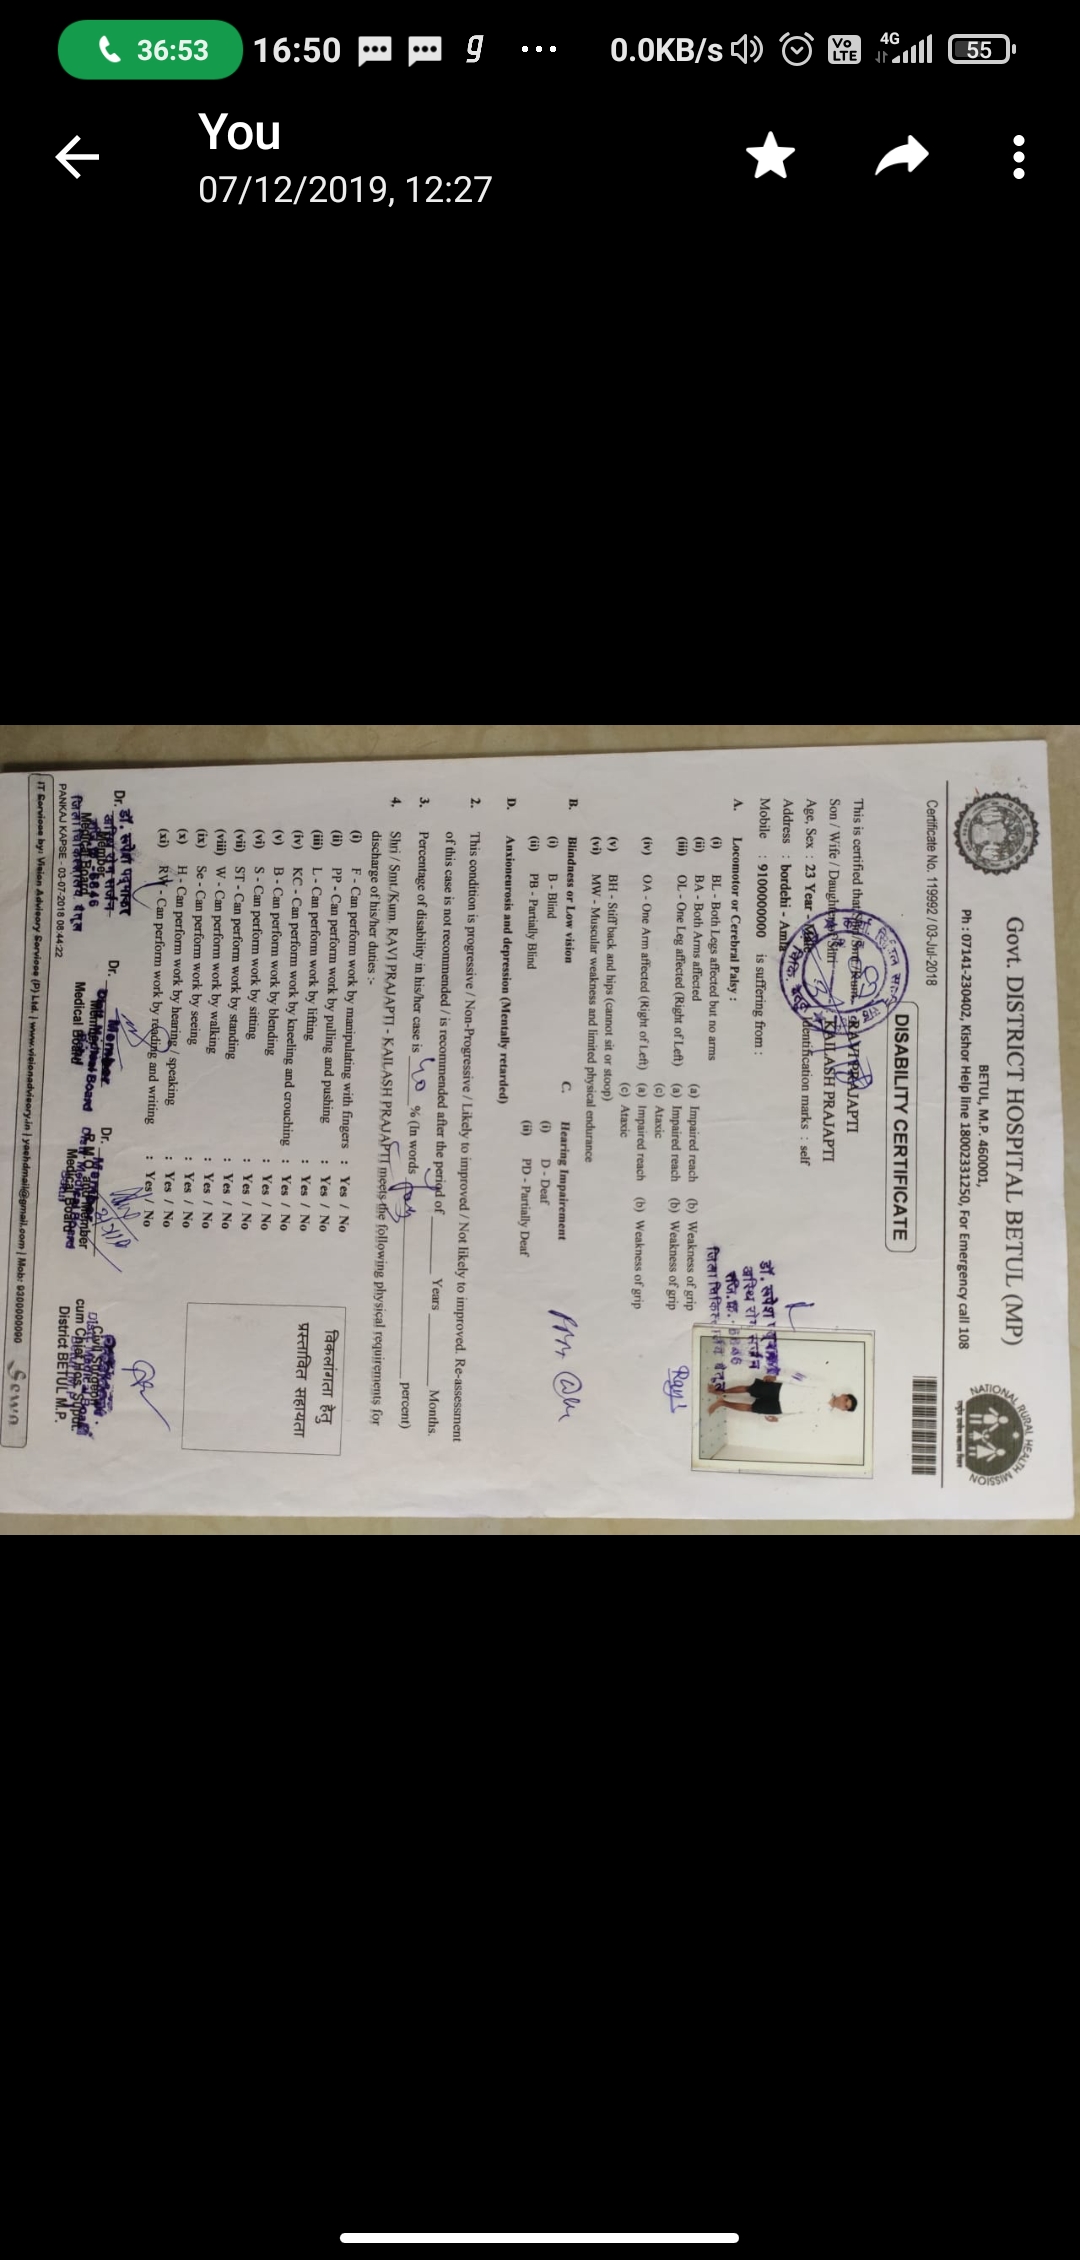 36:53 16:50 g ... 0.0KB/s Vo LTE 4G 55
You
07/12/2019, 12:27
Govt. DISTRICT HOSPITAL BETUL (MP)
BETUL, M.P. 460001,
Ph : 07141-230402, Kishor Help line 18002331250, For Emergency call 108
NATIONAL RURAL HEALTH MISSION
Certificate No. 119992 / 03-Jul-2018
DISABILITY CERTIFICATE
This is certified that RAVI PRAJAPTI
Son / Wife / Daughter KAILASH PRAJAPTI
Age, Sex : 23 Year - Male Identification marks : self
Address : bordehi - Amla
Mobile : 9100000000 is suffering from :
A. Locomotor or Cerebral Palsy :
(i) BL - Both Legs affected but no arms
(ii) BA - Both Arms affected (a) Impaired reach (b) Weakness of grip
(iii) OL - One Leg affected (Right of Left) (a) Impaired reach (b) Weakness of grip
(c) Ataxic
(iv) OA - One Arm affected (Right of Left) (a) Impaired reach (b) Weakness of grip
(c) Ataxic
(v) BH - Stiff back and hips (cannot sit or stoop)
(vi) MW - Muscular weakness and limited physical endurance
B. Blindness or Low vision C. Hearing Impairement
(i) B - Blind (i) D - Deaf
(ii) PB - Partially Blind (ii) PD - Partially Deaf
D. Anxioneurosis and depression (Mentally retarded)
2. This condition is progressive / Non-Progressive / Likely to improved / Not likely to improved. Re-assessment
of this case is not recommended / is recommended after the period of ____ Years ____ Months.
3. Percentage of disability in his/her case is 40 % (In words forty percent)
4. Shri / Smt./Kum. RAVI PRAJAPTI - KAILASH PRAJAPTI meets the following physical requirements for
discharge of his/her duties :-
(i) F - Can perform work by manipulating with fingers : Yes / No
(ii) PP - Can perform work by pulling and pushing : Yes / No
(iii) L - Can perform work by lifting : Yes / No
(iv) KC - Can perform work by kneeling and crouching : Yes / No
(v) B - Can perform work by blending : Yes / No
(vi) S - Can perform work by sitting : Yes / No
(vii) ST - Can perform work by standing : Yes / No
(viii) W - Can perform work by walking : Yes / No
(ix) Se - Can perform work by seeing : Yes / No
(x) H - Can perform work by hearing / speaking : Yes / No
(xi) RW - Can perform work by reading and writing : Yes / No
विकलांगता हेतु
प्रस्तावित सहायता
Dr. Dr. Dr.
Member Member R.M.O. and Member Civil Surgeon
Medical Board Medical Board Medical Board cum Chief Hos. Supdt.
District BETUL M.P.
PANKAJ KAPSE - 03-07-2018 08:44:22
IT Services by: Vision Advisory Services (P) Ltd. | www.visionadvisory.in | yashdmail@gmail.com | Mob: 9300000090